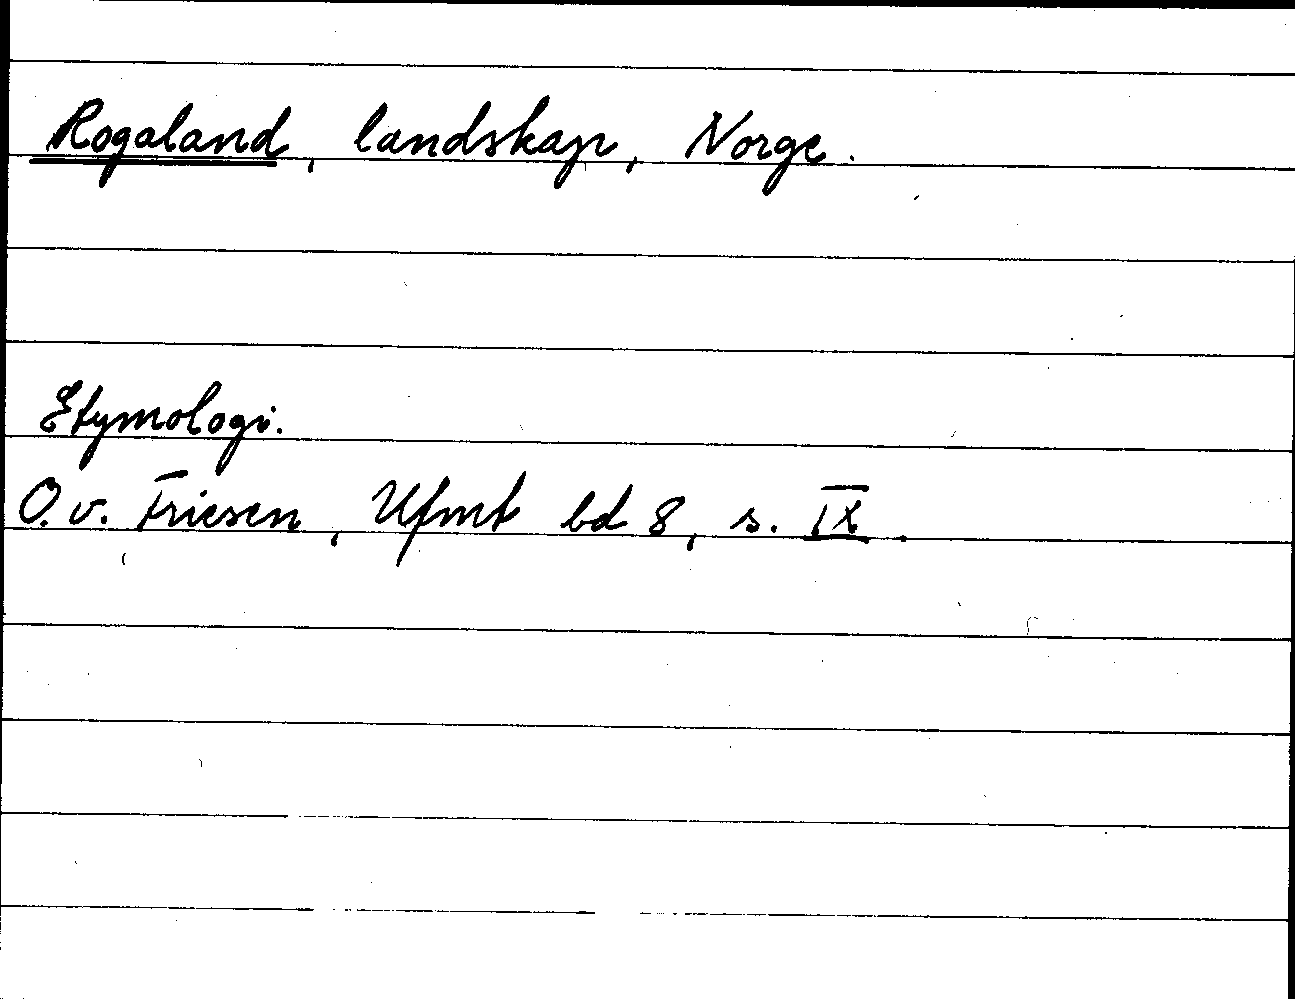 Rogaland, landskap, Norge.
Etymologi.
O. v. Friesen, Ufmt bd 8, s. IX.